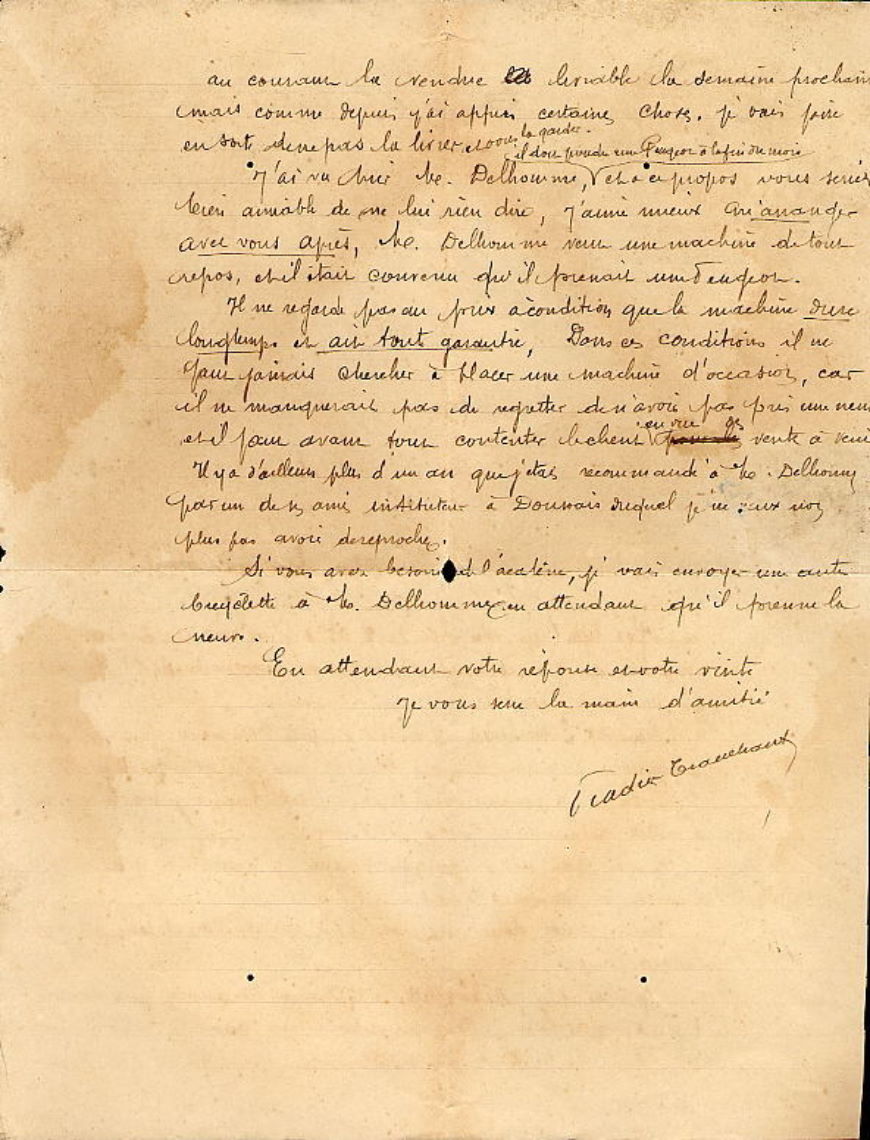 au courant la vendre livrable la semaine prochain
mais comme depuis j'ai appris certaines choses. je vais faire
en sorte de ne pas la livrer et vous la garder.
il doit prendre une Peugeot à la fin du mois
J'ai vu hier Mr. Delhomme, et à ce propos vous seriez
bien aimable de ne lui rien dire, j'aime mieux m'arranger
avec vous après, Mr. Delhomme veut une machine de tout
repos, et il était convenu qu'il prenait une Peugeot.
Il ne regarde pas au prix à condition que la machine dure
longtemps et ait toute garantie, Dans ces conditions il ne
faut jamais chercher à placer une machine d'occasion, car
il ne manquerait pas de regretter de n'avoir pas pris une neuv
et il faut avant tout contenter le client en vue des vente à veni
Il y a d'ailleurs plus d'un an que j'etais recommandé à Mr. Delhomm
par un de ses amis instituteur à Doussais duquel je ne veux non
plus pas avoir de reproches.
Si vous avez besoin de l'acatène, je vais envoyer une autre
bicyclette à Mr. Delhomme en attendant qu'il prenne la
neuve.
En attendant votre réponse et votre visite
Je vous serre la main d'amitié